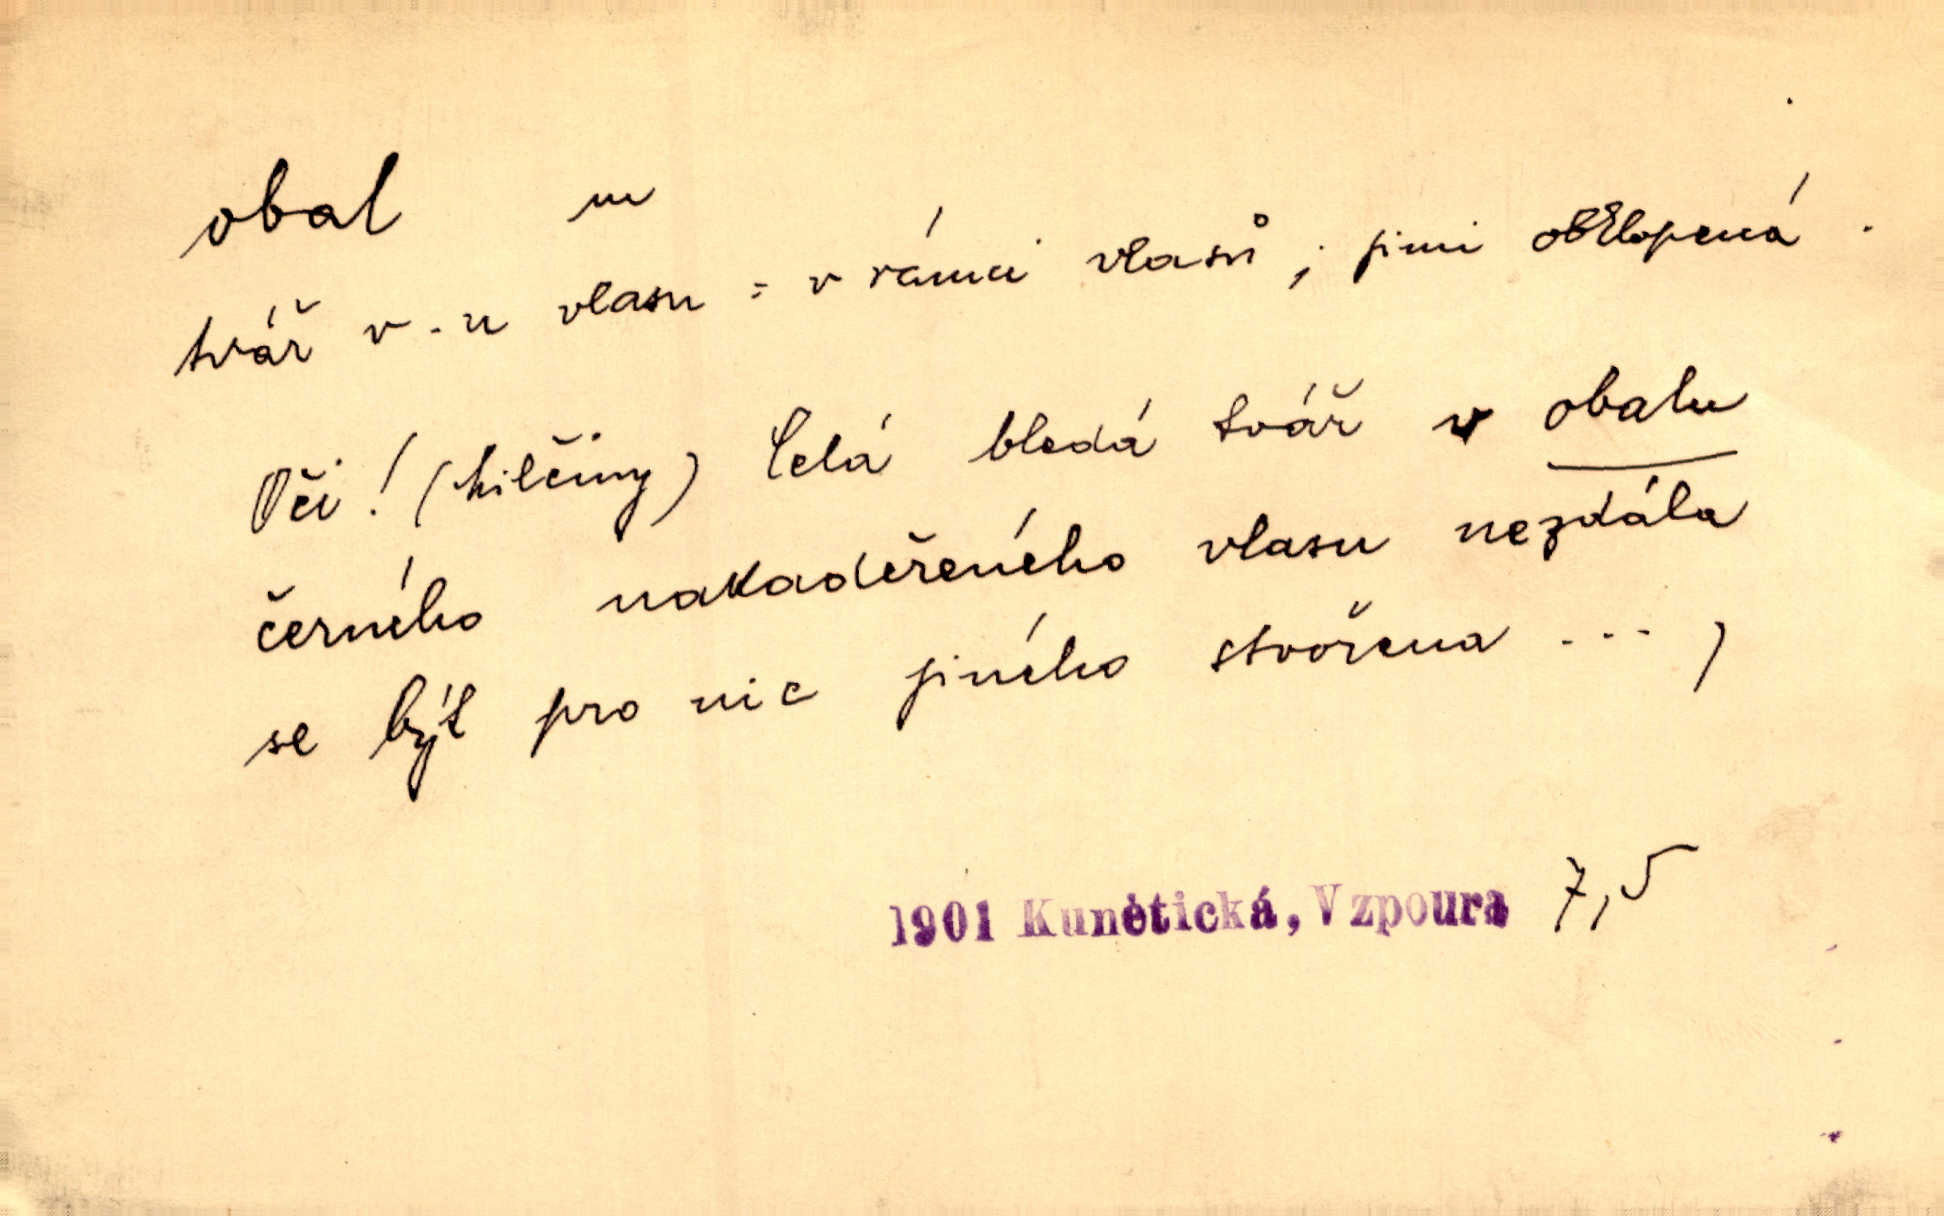 obal m
tvář v -u vlasu = v rámci vlasů, jimi obklopená.
Oči! (hilčiny) Celá bledá tvář v obalu
černého nakadeřeného vlasu nezdála
se být pro nic jiného stvořena ... ,
1901 Kunětická, Vzpoura 7,5